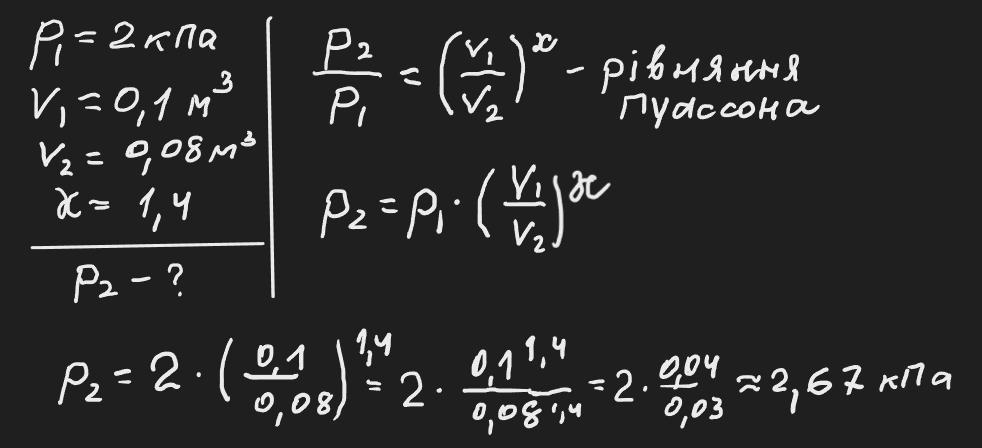 p₁ = 2 кПа
V₁ = 0,1 м³
V₂ = 0,08 м³
ϰ = 1,4
p₂ - ?
p₂/p₁ = (V₁/V₂)^ϰ - рівняння Пуассона
p₂ = p₁ · (V₁/V₂)^ϰ
p₂ = 2 · (0,1/0,08)^1,4 = 2 · 0,1^1,4/0,08^1,4 = 2 · 0,04/0,03 ≈ 2,67 кПа